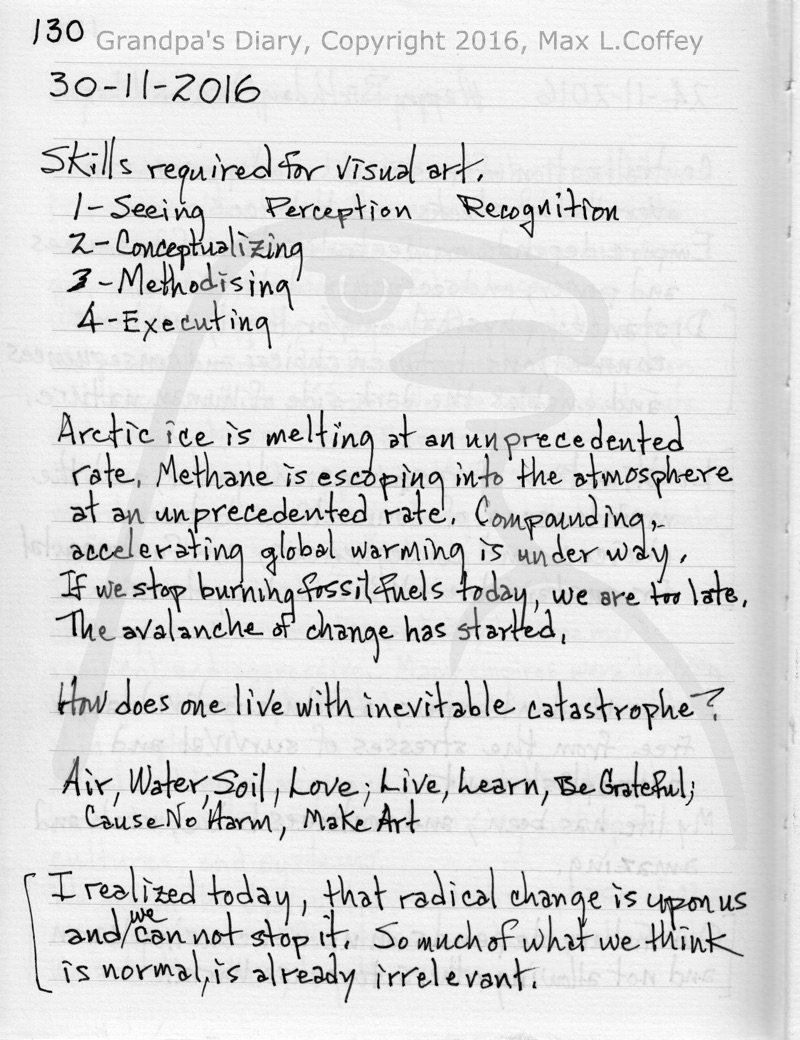 130 Grandpa's Diary, Copyright 2016, Max L.Coffey
30-11-2016
Skills required for visual art.
1-Seeing Perception Recognition
2-Conceptualizing
3-Methodising
4-Executing
Arctic ice is melting at an unprecedented
rate. Methane is escaping into the atmosphere
at an unprecedented rate. Compounding,
accelerating global warming is under way.
If we stop burning fossil fuels today, we are too late.
The avalanche of change has started.
How does one live with inevitable catastrophe?
Air, Water, Soil, Love; Live, Learn, Be Grateful;
Cause No Harm, Make Art
I realized today, that radical change is upon us
and/we can not stop it. So much of what we think
is normal, is already irrelevant.